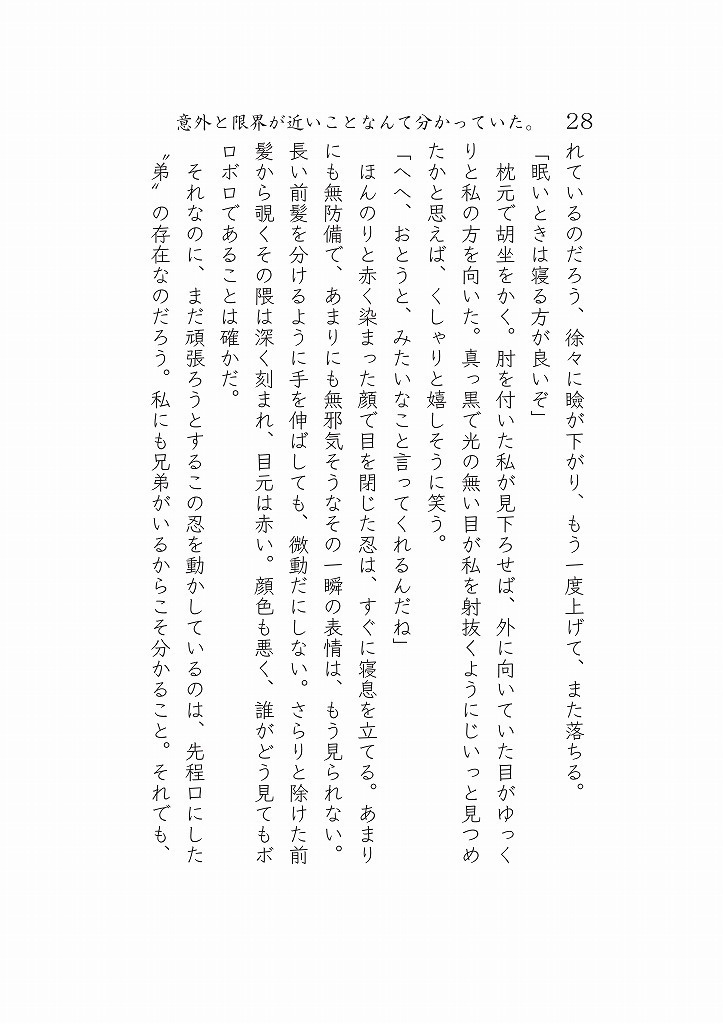 意外と限界が近いことなんて分かっていた。 28
れているのだろう、徐々に瞼が下がり、もう一度上げて、また落ちる。
「眠いときは寝る方が良いぞ」
枕元で胡坐をかく。肘を付いた私が見下ろせば、外に向いていた目がゆっく
りと私の方を向いた。真っ黒で光の無い目が私を射抜くようにじいっと見つめ
たかと思えば、くしゃりと嬉しそうに笑う。
「へへ、おとうと、みたいなこと言ってくれるんだね」
ほんのりと赤く染まった顔で目を閉じた忍は、すぐに寝息を立てる。あまり
にも無防備で、あまりにも無邪気そうなその一瞬の表情は、もう見られない。
長い前髪を分けるように手を伸ばしても、微動だにしない。さらりと除けた前
髪から覗くその隈は深く刻まれ、目元は赤い。顔色も悪く、誰がどう見てもボ
ロボロであることは確かだ。
それなのに、まだ頑張ろうとするこの忍を動かしているのは、先程口にした
〝弟〟の存在なのだろう。私にも兄弟がいるからこそ分かること。それでも、